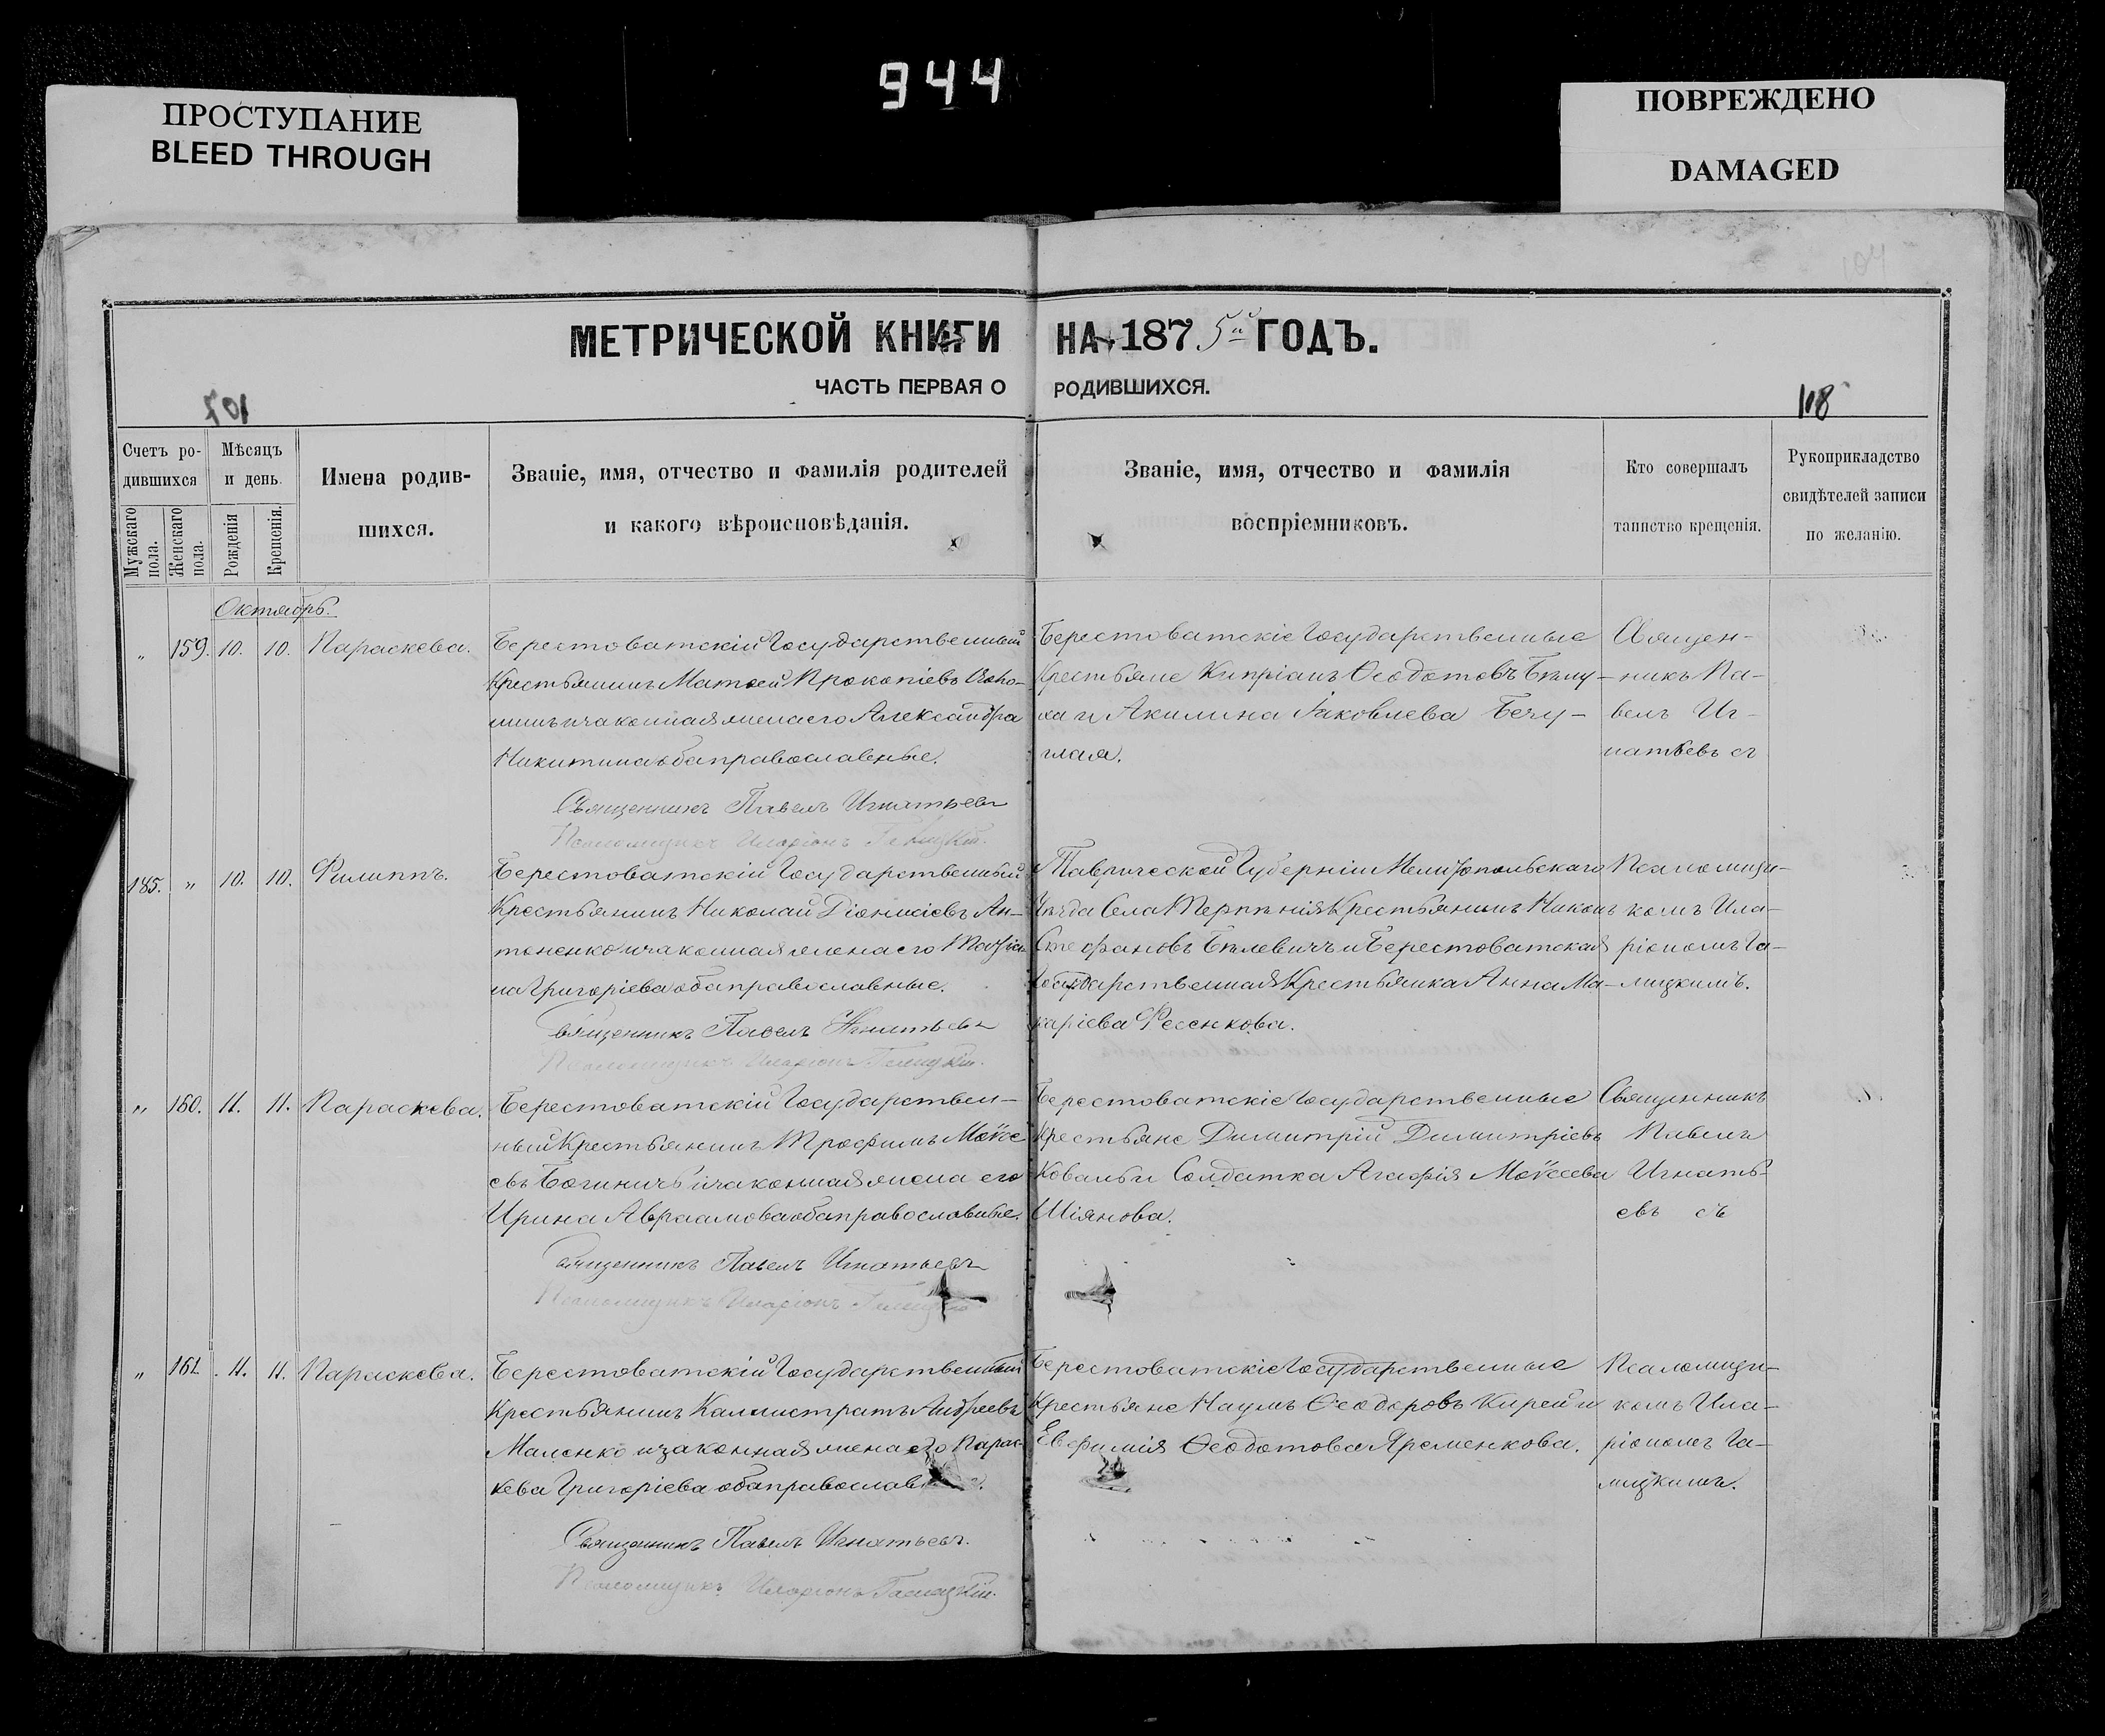 944
ПРОСТУПАНИЕ
BLEED THROUGH
ПОВРЕЖДЕНО
DAMAGED
МЕТРИЧЕСКОЙ КНИГИ НА 1875й ГОДЪ.
ЧАСТЬ ПЕРВАЯ О РОДИВШИХСЯ.
108
Счетъ ро-
дившихся
Мужскаго пола.
Женскаго пола.
Мѣсяцъ
и день.
Рожденія
Крещенія.
Имена родив-
шихся.
Званіе, имя, отчество и фамилія родителей
и какого вѣроисповѣданія.
Званіе, имя, отчество и фамилія
воспріемниковъ.
Кто совершалъ
таинство крещенія.
Рукоприкладство
свидѣтелей записи
по желанію.
Октябрь.
„ 159. 10. 10. Параскева.
Берестоватскій Государственный
Крестьянинъ Матѳей Прокопіевъ
и законная жена его Александра
Никитина оба православные.
Священникъ Павелъ Игнатьевъ
Псаломщикъ Иларіонъ Галицкій.
Берестоватскіе Государственные
Крестьяне Кипріанъ Ѳеодотовъ
и Акилина Іаковлева Безу-
глая.
Священ-
никъ Па-
велъ Иг-
натьевъ съ
185. „ 10. 10. Филиппъ.
Берестоватскій Государственный
Крестьянинъ Николай Діонисіевъ Ан-
тоненко и законная жена его
Григоріева оба православные.
Священникъ Павелъ Игнатьевъ
Псаломщикъ Иларіонъ Галицкій.
Таврической Губерніи Мелитопольскаго
Уѣзда Села Терпѣнія Крестьянинъ Никонъ
Стефановъ Бѣлевичъ и Берестоватская
Государственная Крестьянка Анна Ма-
каріева Фесенкова.
Псаломщи-
комъ Ила-
ріономъ Га-
лицкимъ.
„ 160. 11. 11. Параскева.
Берестоватскій Государствен-
ный Крестьянинъ Трофимъ Моѵсе
евъ Богиничъ и законная жена его
Ирина Авраамова оба православные.
Священникъ Павелъ Игнатьевъ
Псаломщикъ Иларіонъ Галицкій
Берестоватскіе Государственные
Крестьяне Димитрій Димитріевъ
Коваль и Солдатка Агафія Моѵсеева
Шіянова.
Священникъ
Павелъ
Игнать-
евъ съ
„ 161. 11. 11. Параскева.
Берестоватскій Государственный
Крестьянинъ Каллистратъ Андреевъ
Маленко и законная жена его Парас-
кева Григоріева оба православ
Священникъ Павелъ Игнатьевъ.
Псаломщикъ Иларіонъ Галицкій.
Берестоватскіе Государственные
Крестьяне Наумъ Ѳеодоровъ Кирей и
Евфимія Ѳеодотова Яременкова.
Псаломщи-
комъ Ила-
ріономъ Га-
лицкимъ.